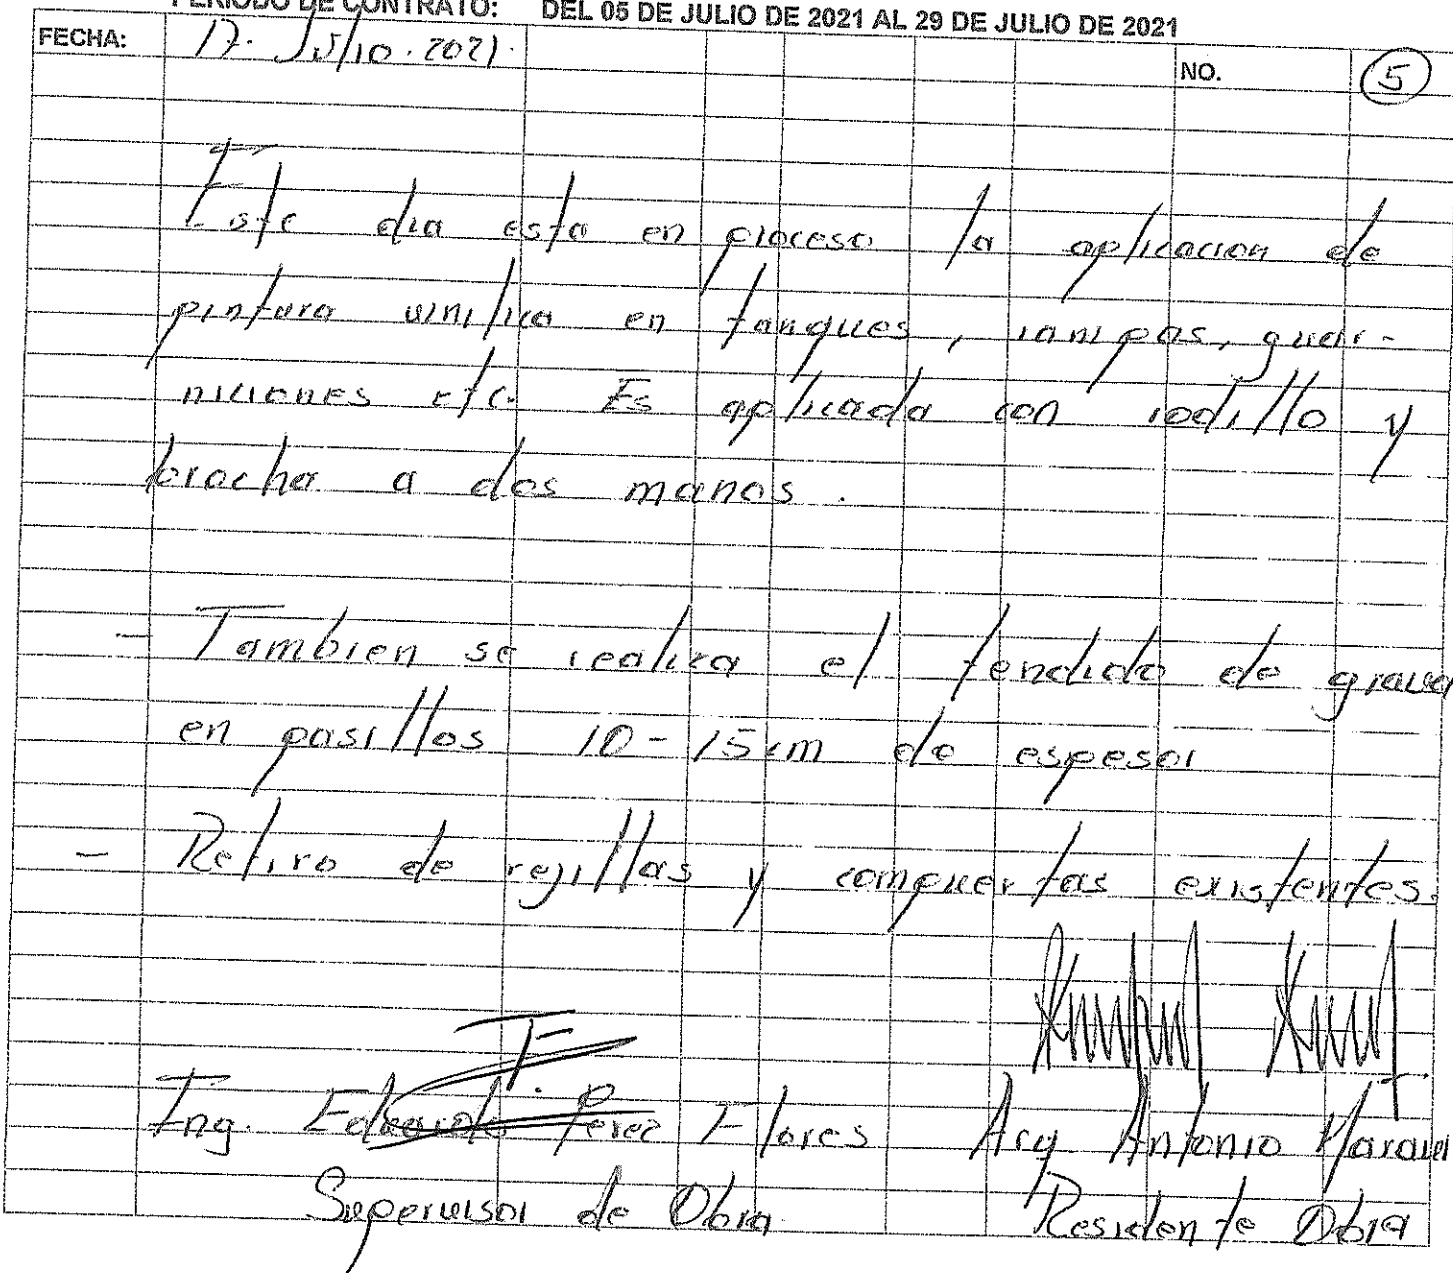 PERIODO DE CONTRATO: DEL 05 DE JULIO DE 2021 AL 29 DE JULIO DE 2021
FECHA: 17. Julio. 2021.
NO. 5
Este dia esta en proceso la aplicacion de
pintura vinilica en tanques, rampas, guar-
niciones etc. Es aplicada con rodillo y
brocha a dos manos.
- Tambien se realiza el tendido de grava
en pasillos 10-15cm de espesor
- Retiro de rejillas y compuertas existentes.
Ing. Eduardo Perez Flores Arq Antonio
Supervisor de Obra. Residente Obra